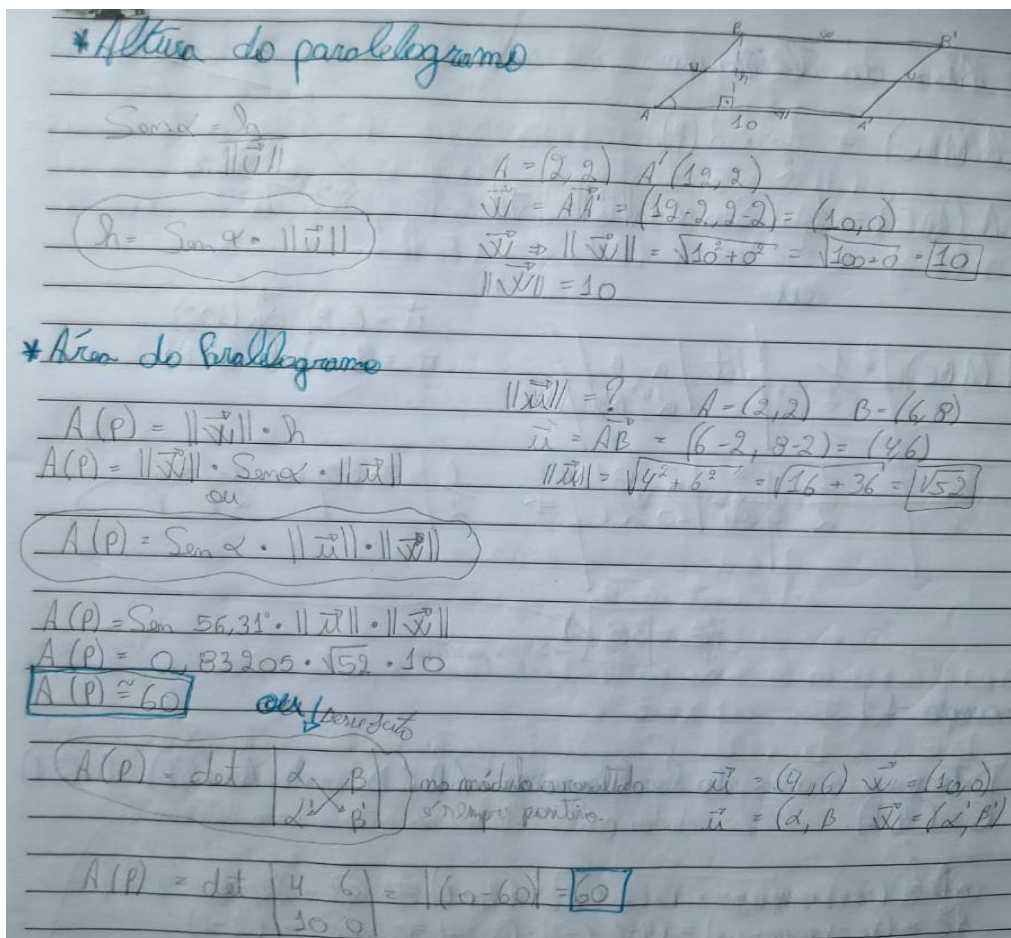 * Altura do paralelogramo
B w B'
u h u
A 10 w A'
Sen α = h
||u||
h = Sen α • ||u||
A = (2,2) A'(12,2)
w = AA' = (12-2, 2-2) = (10,0)
w ⇒ ||w|| = √10² + 0² = √100+0 = 10
||w|| = 10
* Área do Paralelogramo
A(P) = ||w|| • h
A(P) = ||w|| • Senα • ||u||
ou
A(P) = Sen α • ||u|| • ||w||
||u|| = ? A = (2,2) B = (6,8)
u = AB = (6-2, 8-2) = (4,6)
||u|| = √4² + 6² = √16 + 36 = √52
A(P) = Sen 56,31° • ||u|| • ||w||
A(P) = 0,83205 • √52 • 10
A(P) ≅ 60
ou
A(P) = det | α B |
| α' B' |
no módulo o resultado
é sempre positivo.
u = (4,6) w = (10,0)
u = (α, B w = (α', B')
A(P) = det | 4 6 | = |(0-60)| = 60
| 10 0 |